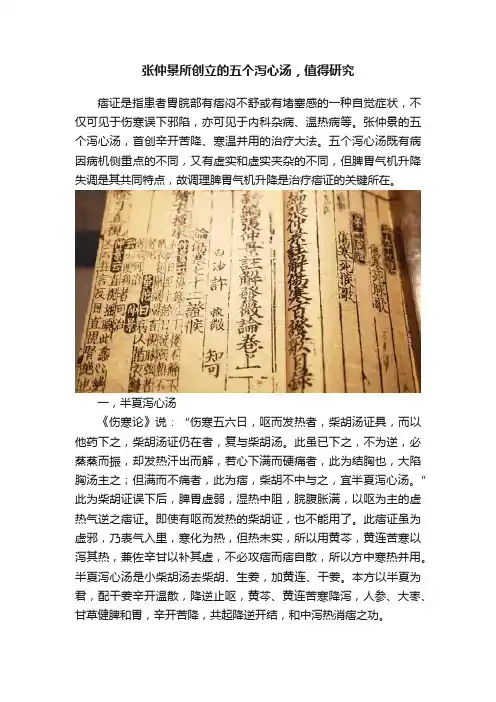 张仲景所创立的五个泻心汤，值得研究
痞证是指患者胃脘部有痞闷不舒或有堵塞感的一种自觉症状，不
仅可见于伤寒误下邪陷，亦可见于内科杂病、温热病等。张仲景的五
个泻心汤，首创辛开苦降、寒温并用的治疗大法。五个泻心汤既有病
因病机侧重点的不同，又有虚实和虚实夹杂的不同，但脾胃气机升降
失调是其共同特点，故调理脾胃气机升降是治疗痞证的关键所在。
傷寒百證歌目録
新編張仲景註解發微論卷之一
白沙許 知可
論傷寒七十二證候
一，半夏泻心汤
《伤寒论》说：“伤寒五六日，呕而发热者，柴胡汤证具，而以
他药下之，柴胡汤证仍在者，复与柴胡汤。此虽已下之，不为逆，必
蒸蒸而振，却发热汗出而解，若心下满而硬痛者，此为结胸也，大陷
胸汤主之；但满而不痛者，此为痞，柴胡不中与之，宜半夏泻心汤。”
此为柴胡证误下后，脾胃虚弱，湿热中阻，脘腹胀满，以呕为主的虚
热气逆之痞证。即使有呕而发热的柴胡证，也不能用了。此痞证虽为
虚邪，乃表气入里，寒化为热，但热未实，所以用黄芩，黄连苦寒以
泻其热，兼佐辛甘以补其虚，不必攻痞而痞自散，所以方中寒热并用。
半夏泻心汤是小柴胡汤去柴胡、生姜，加黄连、干姜。本方以半夏为
君，配干姜辛开温散，降逆止呕，黄芩、黄连苦寒降泻，人参、大枣、
甘草健脾和胃，辛开苦降，共起降逆开结，和中泻热消痞之功。